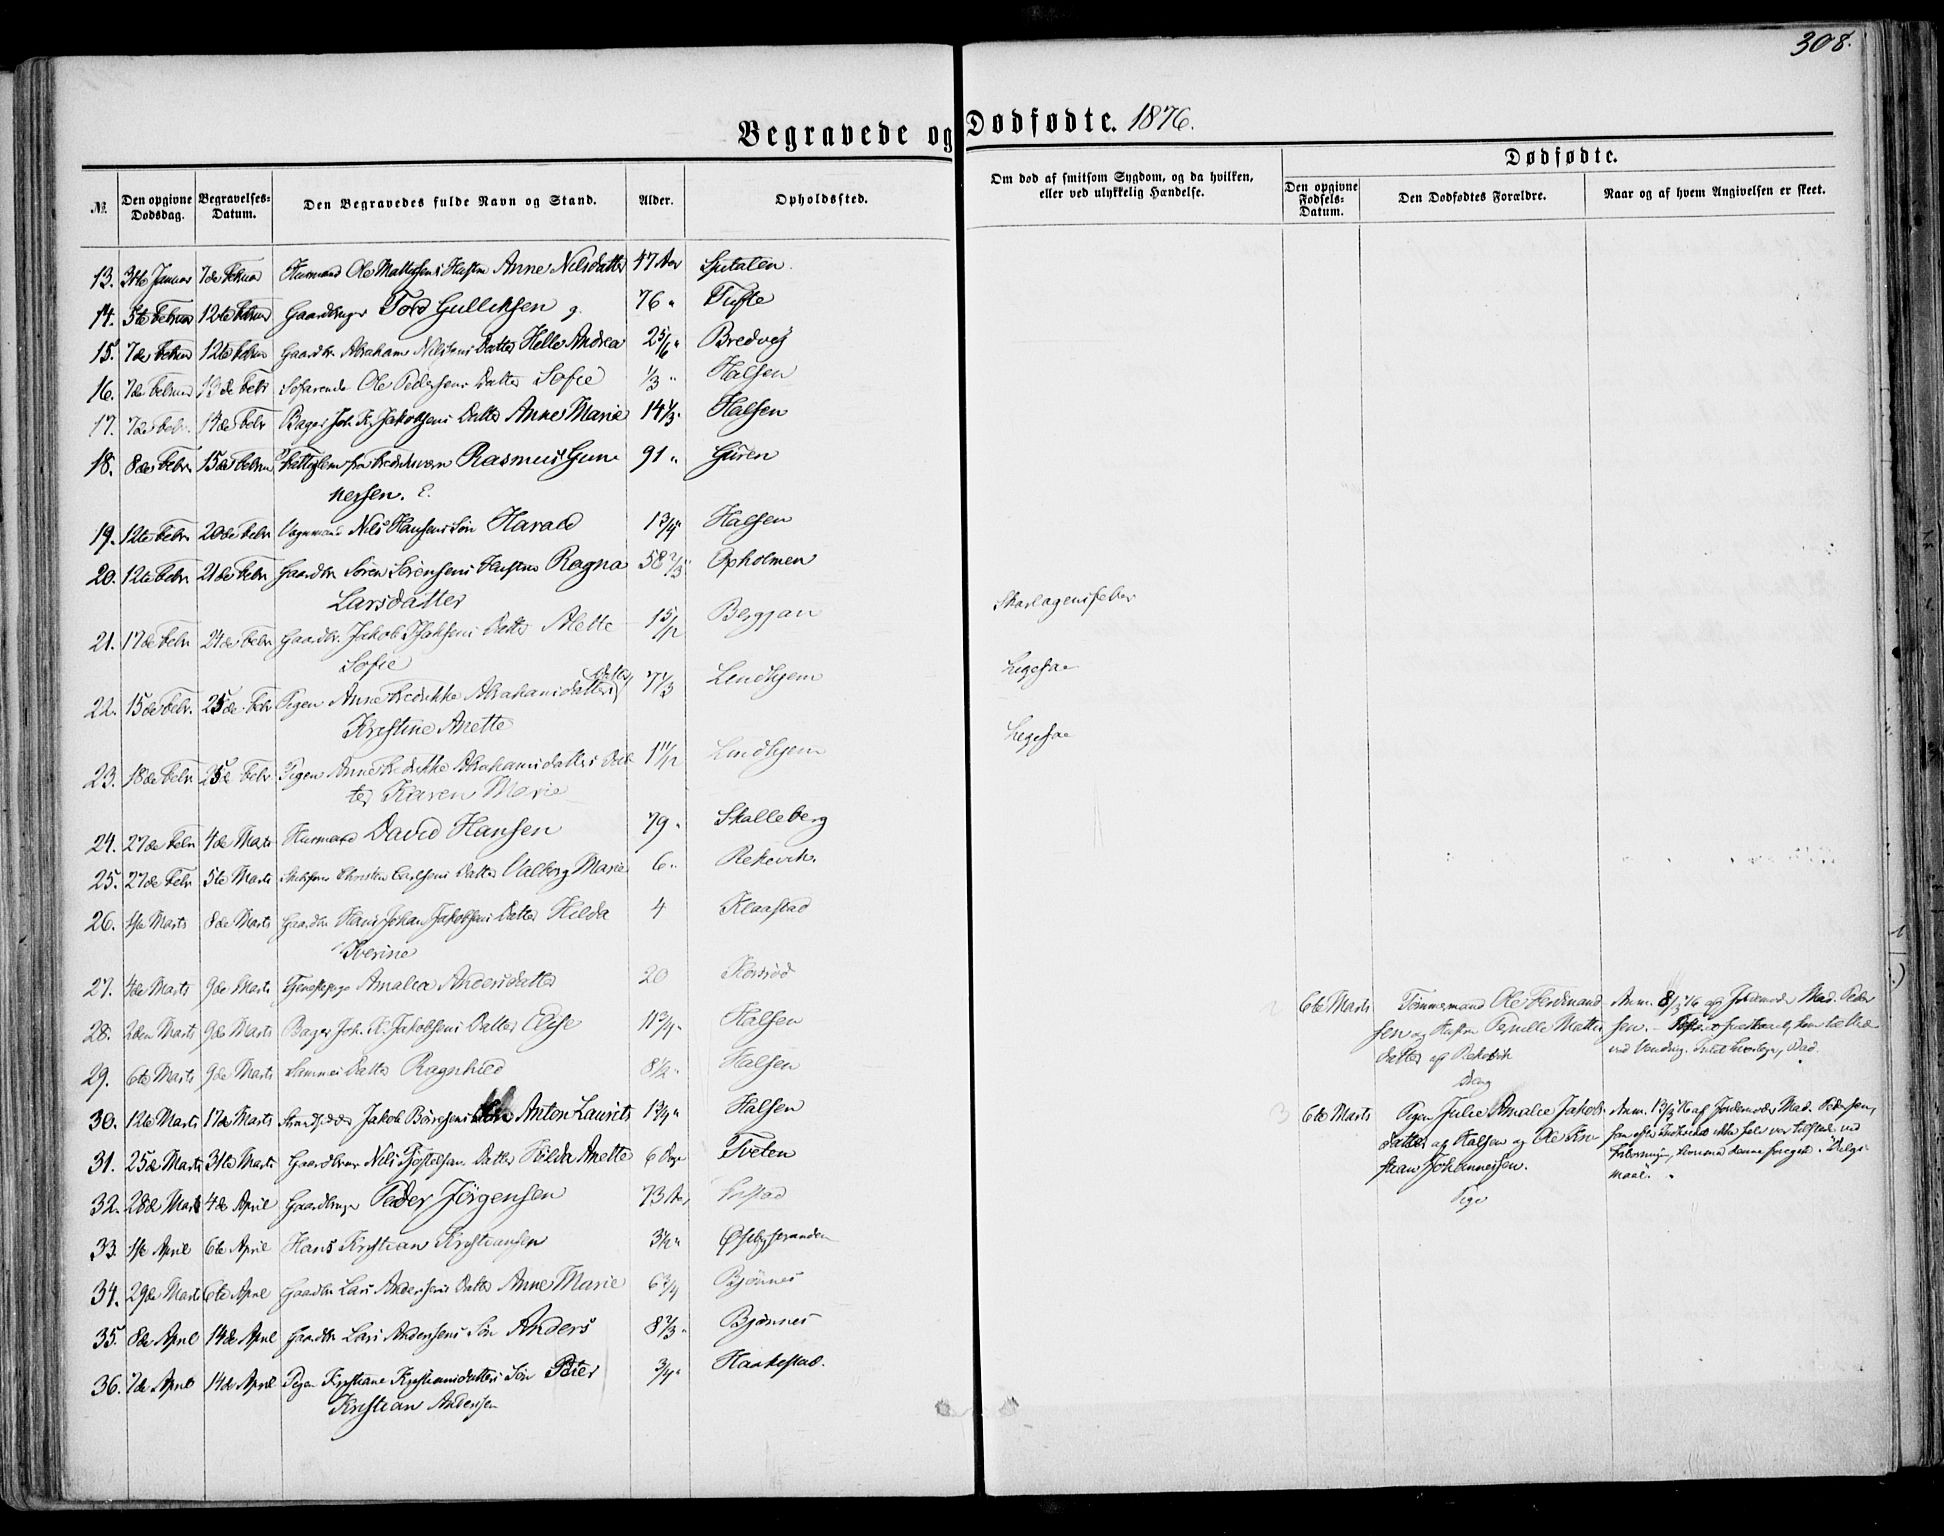 308.
Begravede og Dødfødte. 1876.
№. Den opgivne Dødsdag. Begravelses-Datum. Den Begravedes fulde Navn og Stand. Alder. Opholdssted. Om død af smitsom Sygdom, og da hvilken, eller ved ulykkelig Hændelse.
Dødfødte.
Den opgivne Fødsels-Datum. Den Dødfødtes Forældre. Naar og af hvem Angivelsen er skeet.
13. Januar 7de Februar Husmand Ole Hustru Anne Nilsdatter 47 Aar
14. 5te Februar 12te Februar Gaardbruger Tord Gulliksen 76 " Tufte
15. 7de Februar 12te Februar Gaardbr. Abraham Nilsens Datter Helle Andrea 2 5/6 " Bredvej
16. 7de Februar 13de Febr Søfarende Ole Pedersens Datter Sofie 1/3 " Halsen
17. 7de Febr. 14de Febr Bager Joh. K. Jakobsens Datter Anne Marie 14 1/3 " Halsen
18. 8de Febr. 15de Februar fra Fredriksværn Rasmus Gun- 91 " Guren
nersen. E.
19. 12te Febr 20de Febr Nils Hansens Søn Harald 1 3/4 " Halsen
20. 12te Febr 21de Febr Gaardbr Sören Sörensens Hustru Ragna 58 2/3 " Opholmen
Larsdatter
21. 17de Febr 24de Febr Gaardbr. Jakob Isaksens Datter Alette 1 5/12 Bergjan Skarlagensfeber
Sofie
22. 15de Febr. 25de Febr Pigen Anne Fredrikke Abrahamsdatters Datter 7 1/3 Lindhjem Ligesaa
Kristine Anette
23. 18de Febr 25de Febr Pigen Anne Fredrikke Abrahamsdatters Dat- 1 11/12 Lindhjem Ligesaa
ter Karen Marie
24. 27de Febr 4de Marts Husmand David Hansen 79 " Skalleberg
25. 27de Febr 5te Marts Christen Carlsens Datter Valborg Marie 6 " Rekevik
26. 1ste Marts 8de Marts Gaardbr Hans Johan Jakobsens Datter Hilda 4 Klaastad
Iverine
27. 4de Marts 9de Marts Tjenestepige Amalia Andersdatter 20
28. 2den Marts 9de Marts Bager Joh. K. Jakobsens Datter Elise 11 3/4 " Halsen
29. 6te Marts 9de Marts Sammes Datter Ragnhild 8 1/2 " Halsen
30. 12te Marts 17de Marts Jakob Börresens Søn Anton Laurits 1 3/4 " Halsen
31. 25de Marts 31te Marts Gaardbruger Nils Datter Hilda Anette 6 Dage Tveten
32. 28de Marts 4de April Gaardbruger Peder Jörgensen 73 Aar
33. 1ste April 6te April Hans Kristian Kristiansen 3 1/2 " Østbystranden
34. 29de Marts 6te April Gaardbr Lars Andersens Datter Anne Marie 6 3/4 Bjönnes
35. 8de April 14de April Gaardbr Lars Andersens Søn Anders 8 2/3 " Bjönnes
36. 7de April 14de April Pigen Kristiane Kristiansdatters Søn Peter 3/4 " Haakestad.
Kristian Andersen
2 6te Marts Tømmermand Ole Ferdinand- Anm. 8/3 76 af Jordemoder Mad. Peder-
sen og Hustru Pernille Mathis- sen.
datter af Rekevik
Dreng
3 6te Marts Pigen Julie Amalie Jakobs- Anm. 13/3 76 af Jordemoder Mad. Pedersen,
datter af Halsen og Ole Kri- som efter ikke selv var tilstede ved
stian Johannessen.
Pige